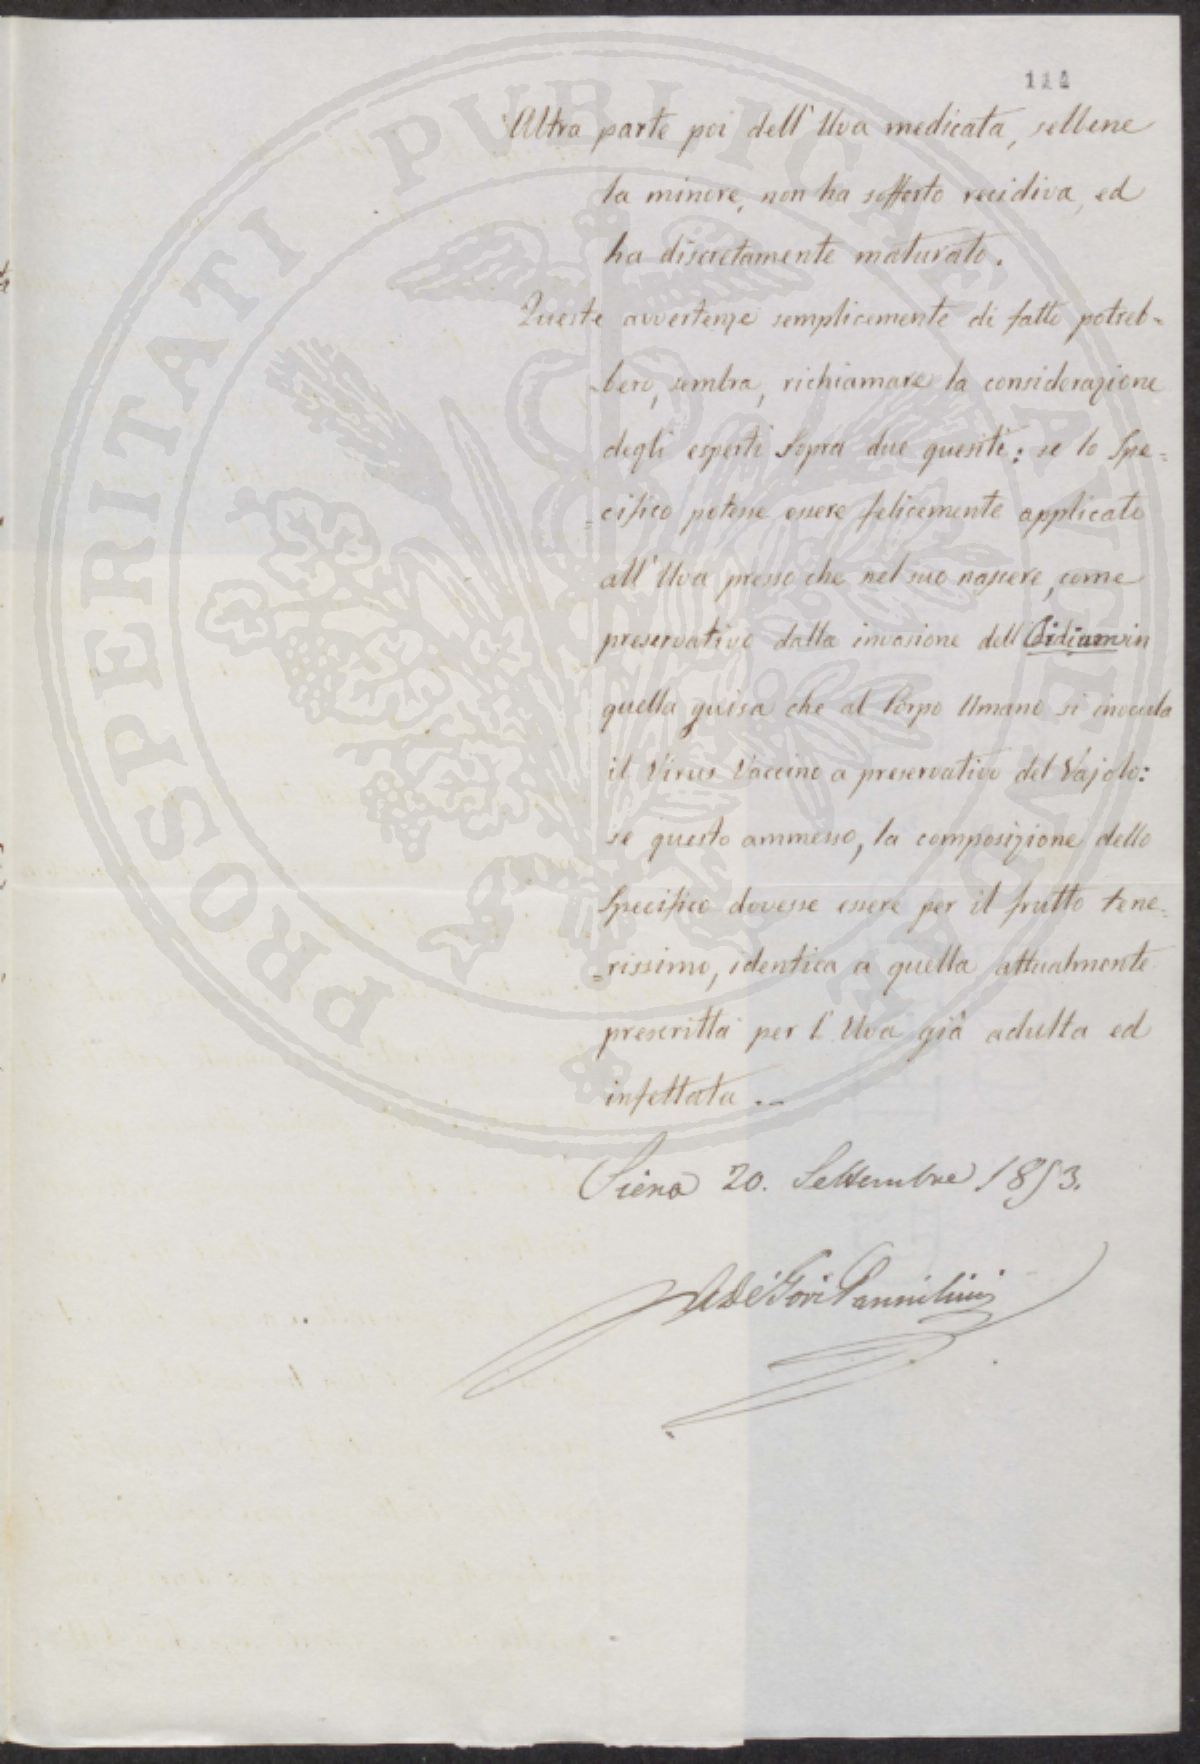 114
Altra parte poi dell'Uva medicata, sebbene
la minore, non ha sofferto recidiva, ed
ha discretamente maturato.
Queste avvertenze semplicemente di fatto potreb=
=bero, sembra, richiamare la considerazione
degli esperti sopra due quesiti: se lo Spe=
=cifico potesse essere felicemente applicato
all'Uva presso che nel suo nascere, come
preservativo dalla invasione dell'Oidium in
quella guisa che al Corpo Umano si inocula
il Virus Vaccino a preservativo del Vajolo:
se questo ammesso, la composizione dello
Specifico dovesse essere per il frutto tene=
=rissimo, identica a quella attualmente
prescritta per l'Uva già adulta ed
infettata.—
Siena 20. Settembre 1853.
A De' Gori Pannilini
PROSPERITATI PUBLICAE AUGENDAE